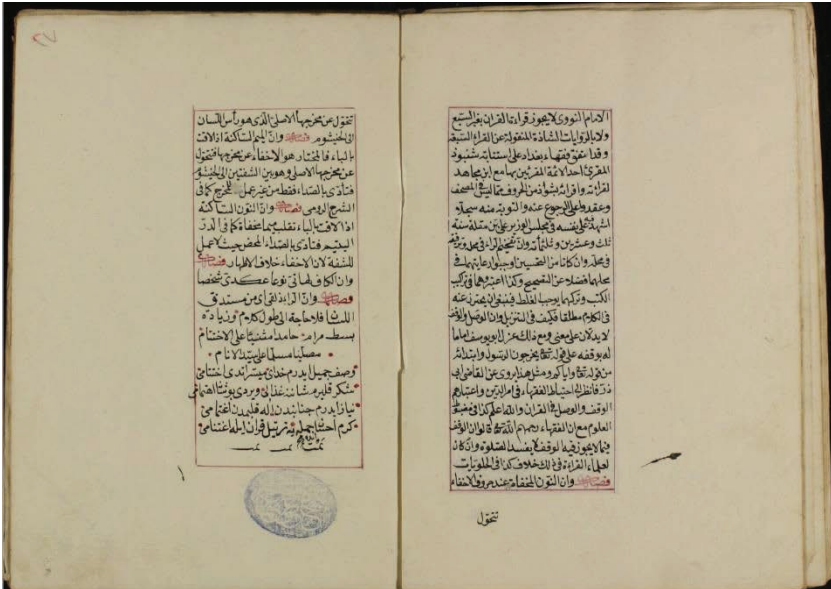 الامام النووى لايجوز قراءة القران بغير السبع
ولا بالروايات الشاذة المنقولة عن القراء السبعة
وقد اتفق فقهاء بغداد على استتابة شنبوذ
المقرئ احد الائمة المقرئين بها مع ابن مجاهد
لقراءته واقرائه بشواذ من الحروف مما ليس فى المصحف
وعقدوا على الرجوع عنه والتوبة منه سجلا
اشهد فيه على نفسه فى مجلس الوزير على بن مقلة سنة
ثلث وعشرين وثلثمائة وان تفخيم الراء فى محله وترقيقه
فى محله وان كانا من التحسين اوجبوا رعايتهما فى
محلهما فضلا عن التصحيح وكذا
الكتب وتركهما يوجب الغلط فينبغى ان يحترز عنه
فى الكلام مطلقا فكيف فى التنزيل وان الوصل والوقف
لا يدلان على معنى ومع ذلك عزل ابو يوسف اماما
له بوقفه على قوله تعالى يخرجون الرسول وابتدائه
من قوله تعالى واياكم ومثل هذا يروى عن القاضى ابى
ذر فانظر الى احتياط الفقهاء فى امر الدين واعتبارهم
الوقف والوصل فى القران والله اعلم كذا فى
العلوم مع ان الفقهاء رحمهم الله تعالى قالوا ان الوقف
فيما لا يجوز فيه الوقف لا يفسد الصلوة وان كان
لعلماء القراءة فى ذلك خلاف كذا فى الحلويات
فصل وان النون المخفاة عند حروف الاخفاء
تتحول
تتحول عن مخرجها الاصلى الذى هو رأس اللسان
الى الخيشوم فصل وان الميم الساكنة اذ الاقت
بالباء فالمختار هو الاخفاء عن مخرجها فتتحول
عن مخرجها الاصلى وهو بين الشفتين الى الخيشوم
فتأدى بالصداء فقط من غير عمل للمخرج كما فى
الشرح الرومى فصل وان النون الساكنة
اذا لاقت بالباء تقلب ميما مخفاة كما فى الدر
اليتيم فتأدى بالصداء المحض حيث لا عمل
للشفة لان الاخفاء خلاف الاظهار فصل
وان الكاف لها تى نوعا عكدى شخصا
فصل وان الراء ذلقى اى من مستدق
اللسان فلا حاجة الى طول كلام وزيادة
بسط مرام حامدا مثنيا على الاختتام
مصليا مسلما على سيد الانام
وصف جميل ايدرم خدايى ميسر ايدى اختتامى
شكر قليرم شانه غذالى ويردى بونك اهتمامى
نياز ايدرم جنابندن اله قليدن اغتمامى
كرم احسان جمله يه ترتيل قران ايله اغتنامى
تمت تمت تمت